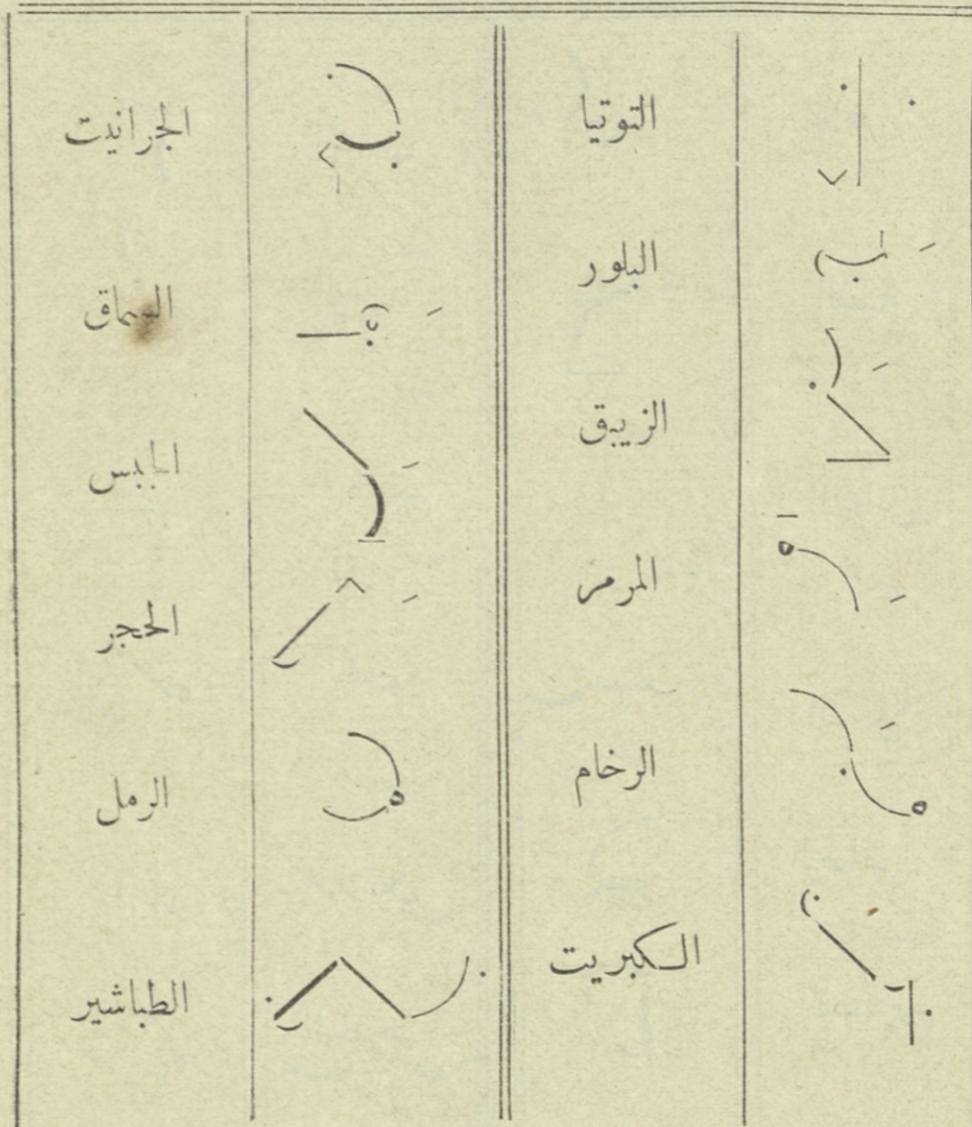 التوتيا
البلور
الزيبق
المرمر
الرخام
الكبريت
الجرانيت
السماق
الجبس
الحجر
الرمل
الطباشير